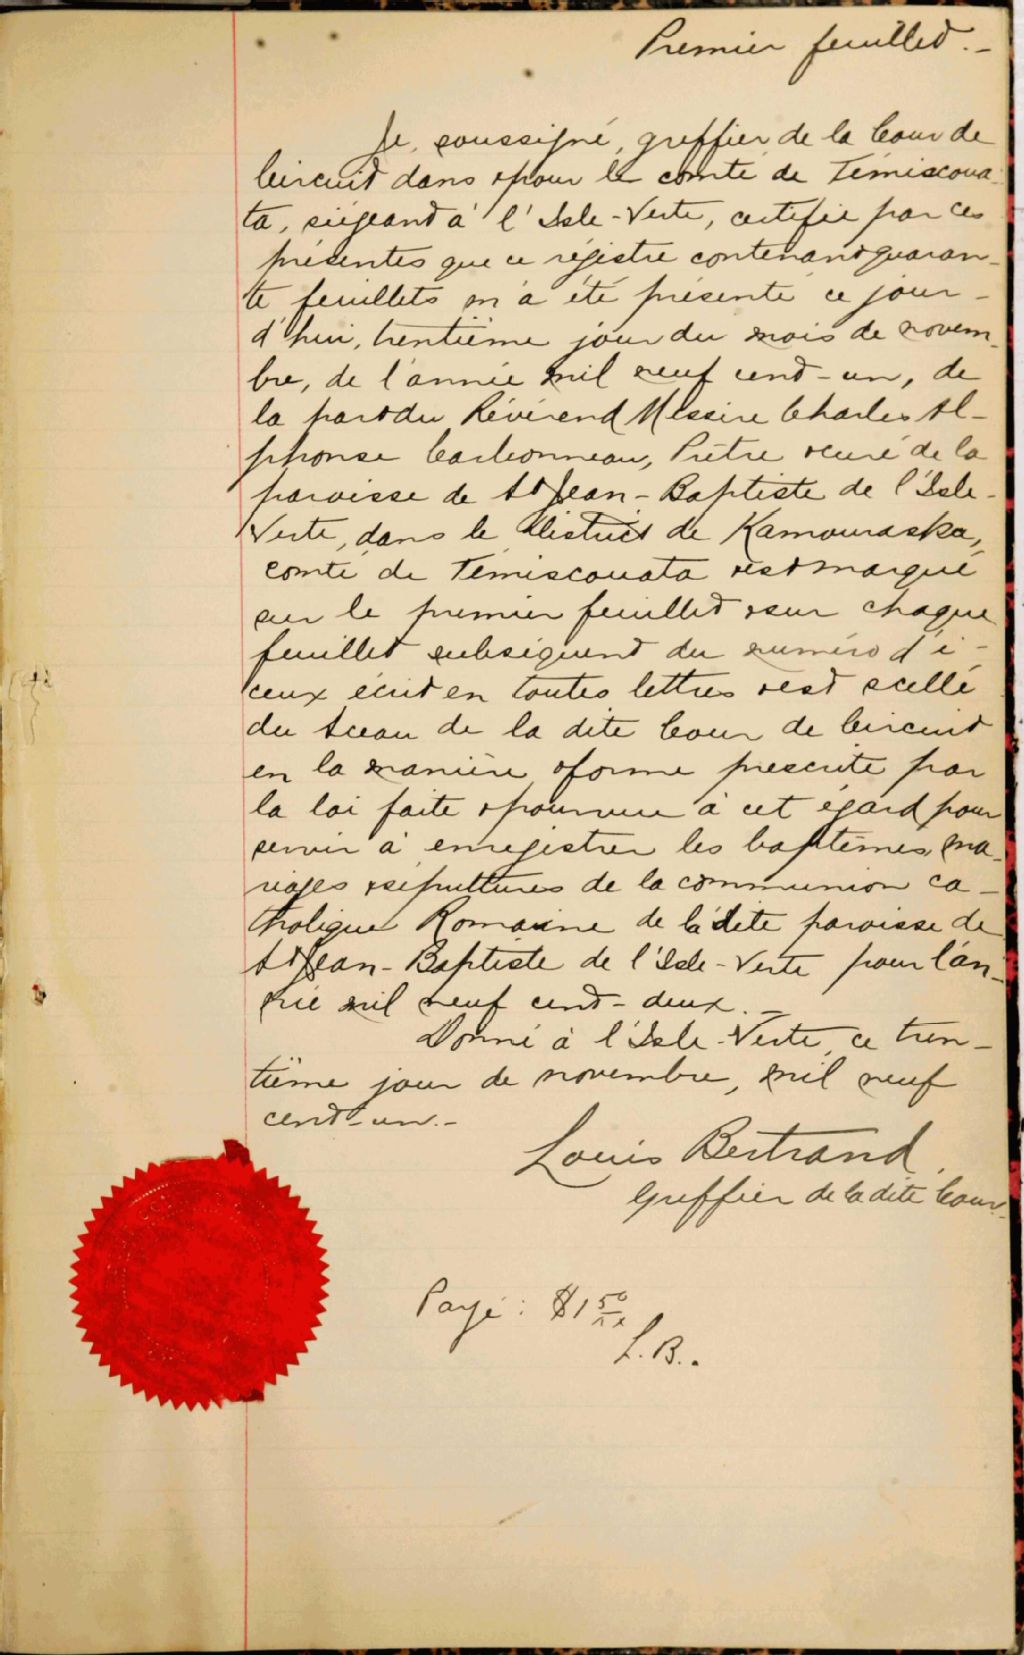 Premier feuillet.-
Je, soussigné, greffier de la Cour de
Circuit dans & pour le comté de Témiscoua-
ta, siégeant à l'Isle-Verte, certifie par ces
présentes que ce régistre contenant quaran-
te feuillets m'a été présenté ce jour-
d'hui, trentième jour du mois de novem-
bre, de l'année mil neuf cent-un, de
la part du Révérend Messire Charles Al-
phonse Carbonneau, Prêtre & curé de la
paroisse de St Jean-Baptiste de l'Isle-
Verte, dans le District de Kamouraska,
comté de Témiscouata & est marqué
sur le premier feuillet & sur chaque
feuillet subséquent du numéro d'i-
ceux écrit en toutes lettres & est scellé
du Sceau de la dite Cour de Circuit
en la manière & forme prescrite par
la loi faite & pourvue à cet égard pour
servir à enregistrer les baptêmes, ma-
riages & sépultures de la communion ca-
tholique Romaine de la dite paroisse de
St Jean-Baptiste de l'Isle-Verte pour l'an-
née mil neuf cent-deux.-
Donné à l'Isle-Verte, ce tren-
tième jour de novembre, mil neuf
cent-un.-
Louis Bertrand,
Greffier de la dite Cour.-
Payé: $1 50
L.B..